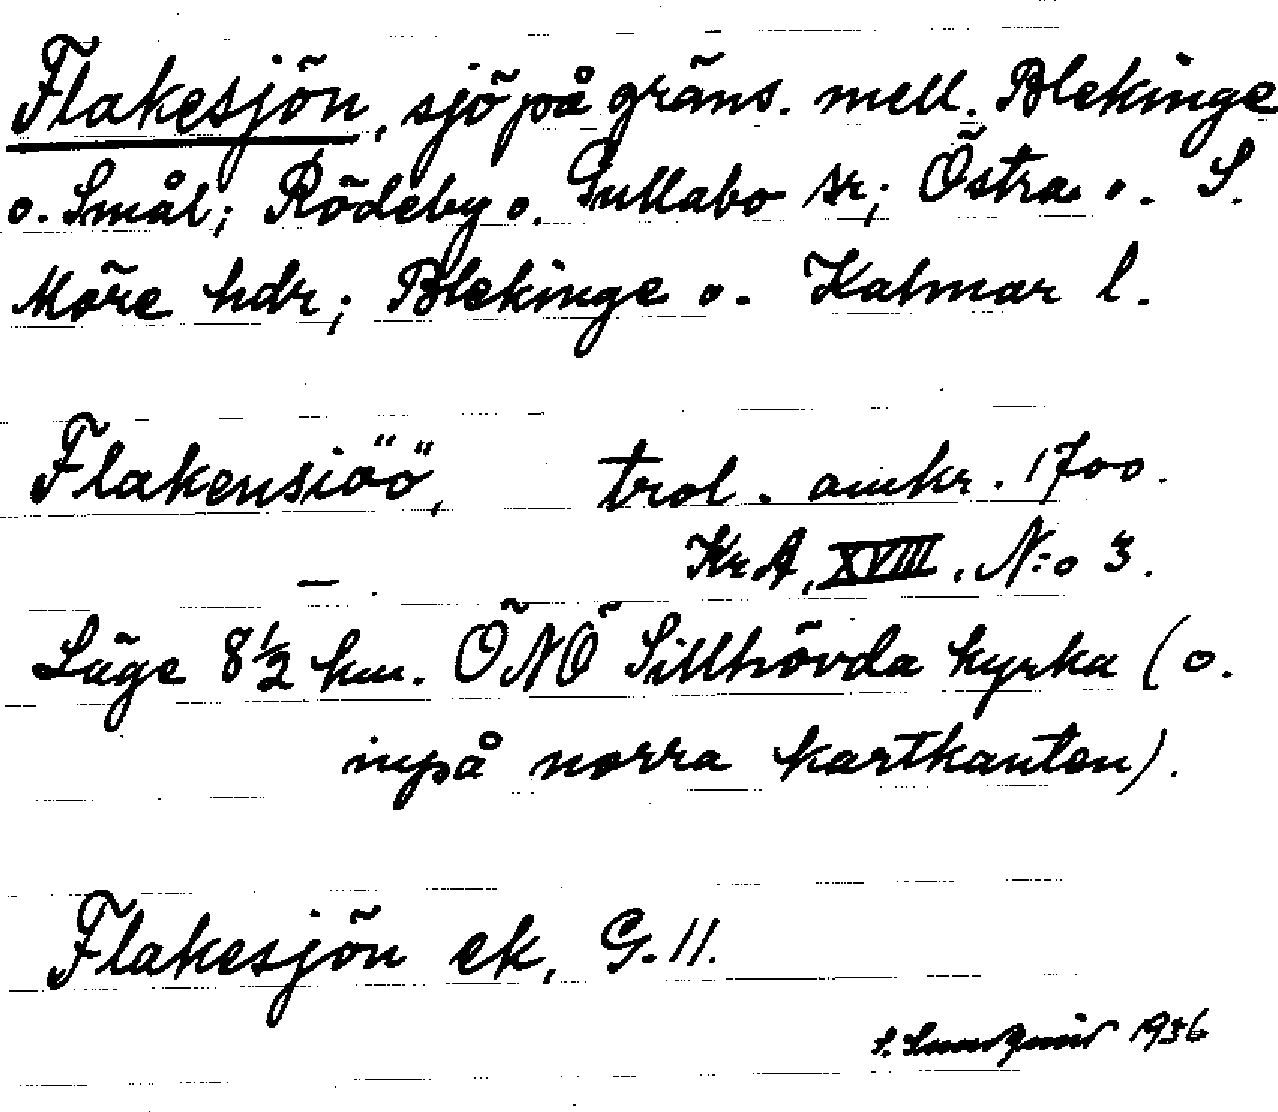 Flakesjön, sjö på gräns. mell. Blekinge
o. Smål; Rödeby o. Gullabo sr; Östra o. S.
Möre hdr; Blekinge o. Kalmar l.
Flakensiöö, trol. omkr. 1700.
KrA, XVIII, N:o 3.
Läge 8½ km. ÖNÖ Sillhövda kyrka (o.
inpå norra kartkanten).
Flakesjön ek, G. 11.
1936